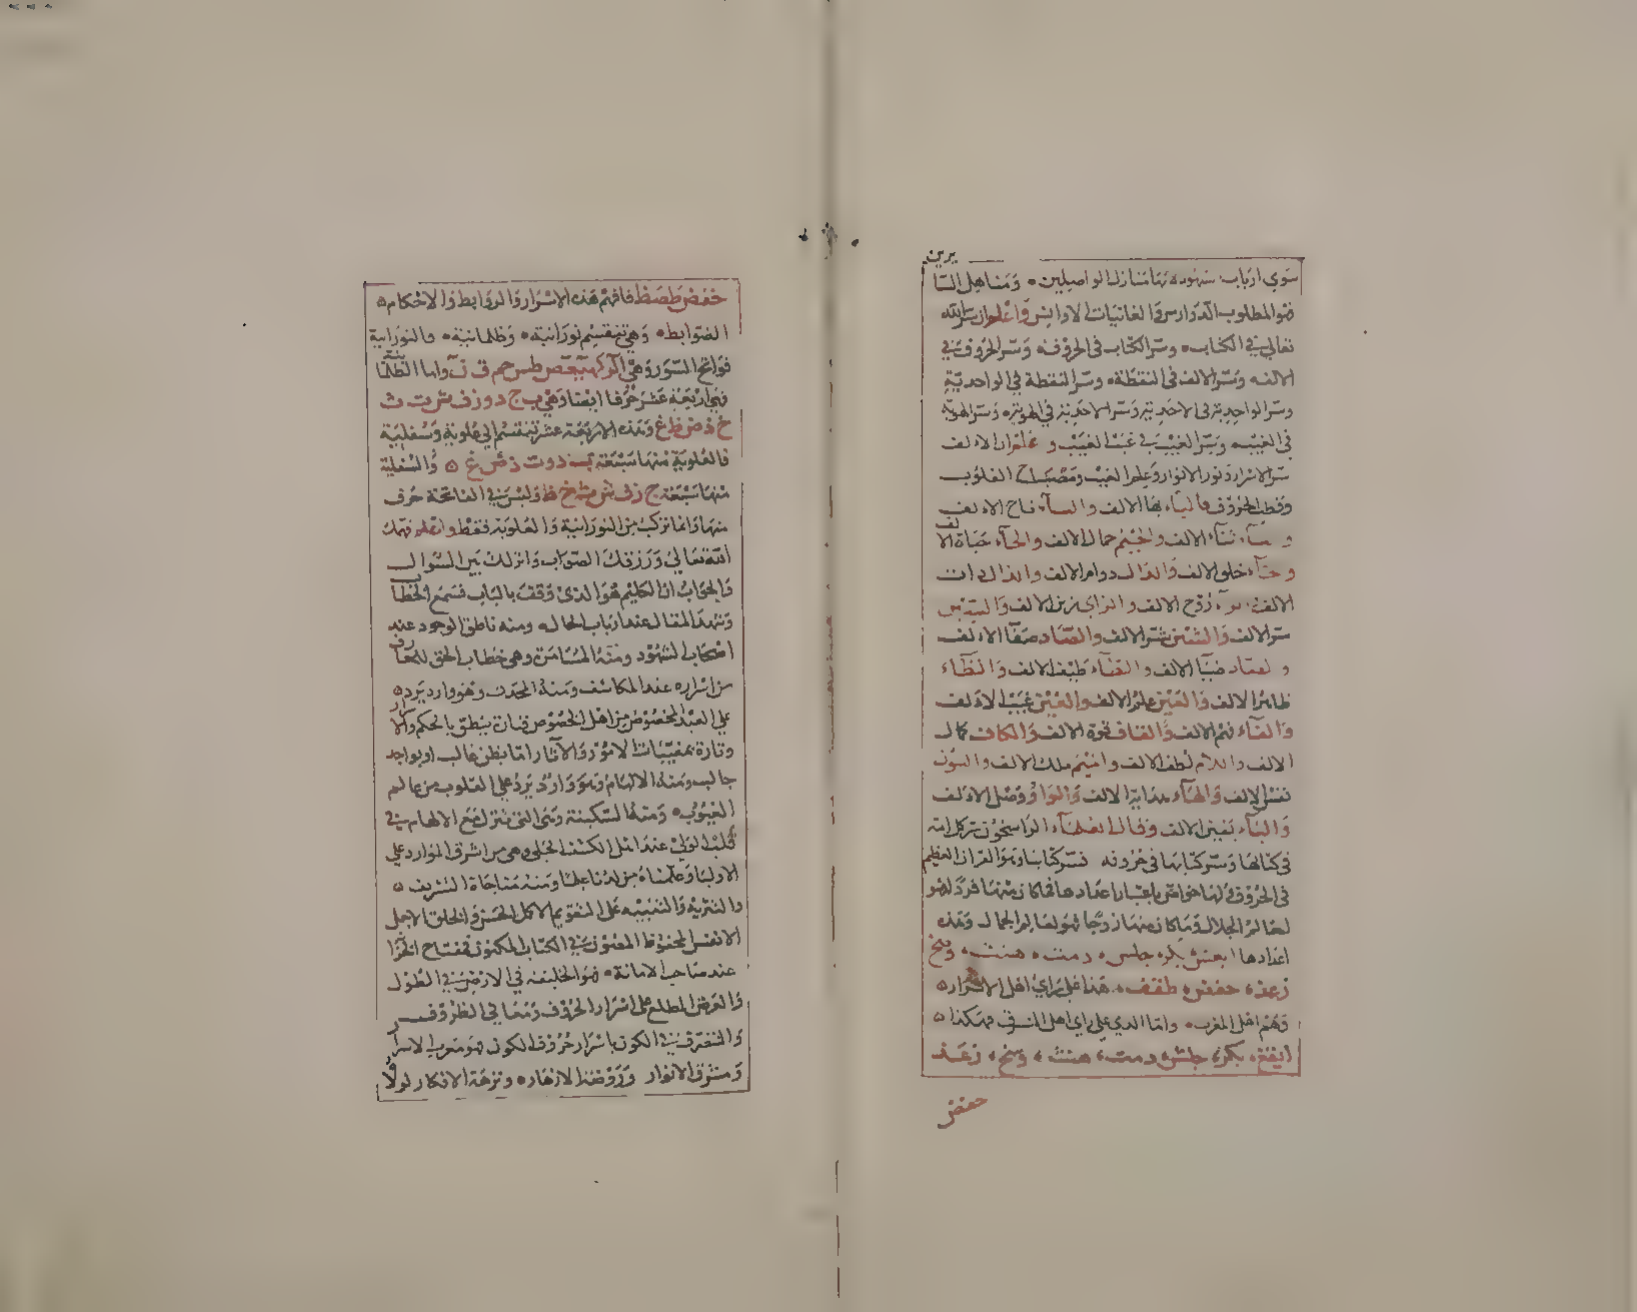 يرين
سوى ارباب شهوده لانها منازل الواصلين ومناهل السا
فهو المطلوب الدوارس والغانيات الاوانس واعلم ان سر الله
تعالى في الكتاب وسر الكتاب في الحروف وسر الحروف في
الالف وسر الالف في النقطة وسر النقطة في الواحدية
وسر الواحدية في الاحدية وسر الاحدية في الهوية وسر الهوية
في الغيب وسر الغيب في غيب الغيب واعلم ان الالف
سر الاسرار ونور الانوار وعلم الغيب ومصباح القلوب
وقطب الحروف فالباء بها الالف والتاء تاج الالف
و ثاء ثناء الالف والجيم جمال الالف والحاء حياة الالف
وخاء خلق الالف والدال دوام الالف والذال ذات
الالف روح الالف والزاي زين الالف والسين
سر الالف والشين شر الالف والصاد صفا الالف
والضاد ضيا الالف والطاء طيف الالف والظاء
ظاهر الالف والعين علم الالف والغين غيب الالف
والفاء فهم الالف والقاف قوة الالف والكاف كمال
الالف واللام لطف الالف والميم ملك الالف والنون
نفس الالف والهاء هداية الالف والواو وصل الالف
والياء يقين الالف وقال العلماء الراسخون سر كل امة
في كتابها وسر كتابها في حروفه فسر كتابنا وهو القران العظيم
في الحروف لها خواص باعتبار اعدادها فما كان منها فردا فهو
لعالم الجلال وما كان منها زوجا فهو لعالم الجمال وهذه
اعدادها ايقش بكر جلس دمت هنث وسخ
زعذ حفض طقف هذا على راي اهل الاسرار
وهم اهل المغرب واما الذي على راي اهل الشرق فهكذا
ايقغ بكر جلش دمت هنث وسخ زعذ
حفض
حفض طصظ فافهم هذه الاسرار والروابط والاحكام
الضوابط وهي تنقسم نورانية وظلمانية فالنورانية
فواتح السور وهي الر كهيعص طس حم ق ن واما الظلمانية
فهي اربعة عشر حرفا ايضا وهي ب ج د و ز ف ش ت ث
خ ذ ض ظ غ وهذه الاربعة عشر تنقسم الى علوية وسفلية
فالعلوية منها سبعة ب د و ت ذ ض غ والسفلية
منها سبعة ج ز ف ش ث خ ظ وليس في الفاتحة حرف
منها وانما تركب من النورانية والعلوية فقط واعلم فهمك
الله تعالى ورزقك الصواب وانزلك بين السوال
والجواب ان الحكيم هو الذي وقف بالباب فسمع الخطاب
وشهد المقال عند ارباب الحال ومنه ناطق الوجود عند
اصحاب الشهود ومنه المسامرة وهي خطاب الحق للعارف
من اسراره عند المكاشف ومنه المحدث وهو وارد يرد
على العبد المخصوص من اهل الخصوص فتارة ينطق بالحكم والاسرار
وتارة بمغيبات الامور والاثار اما بظن غالب او بواجد
جالب ومنه الالهام وهو وارد يرد على القلوب من عالم
الغيوب ومنه السكينة وهي التي تنزل مع الالهام في
قلب الولي عند اهل الكشف الجلي وهي من اشرق الموارد على
الاوليا وعلمناه من لدنا علما ومنه مناجاة التشريف
والتنزيه والتنبيه على التقويم الاكمل الحسن والخلق الاجمل
الانفس المحفوظ المصون في الكتاب المكنون فمفتاح الخزائن
عند صاحب الامانة فهو الخليفة في الارض في الطول
والعرض المطلع على اسرار الحروف ومعاني الظروف
والمتصرف في الكون باسرار حروف الكون فهو مغرب الاسرار
ومشرق الانوار وروضة الازهار ونزهة الافكار لولا